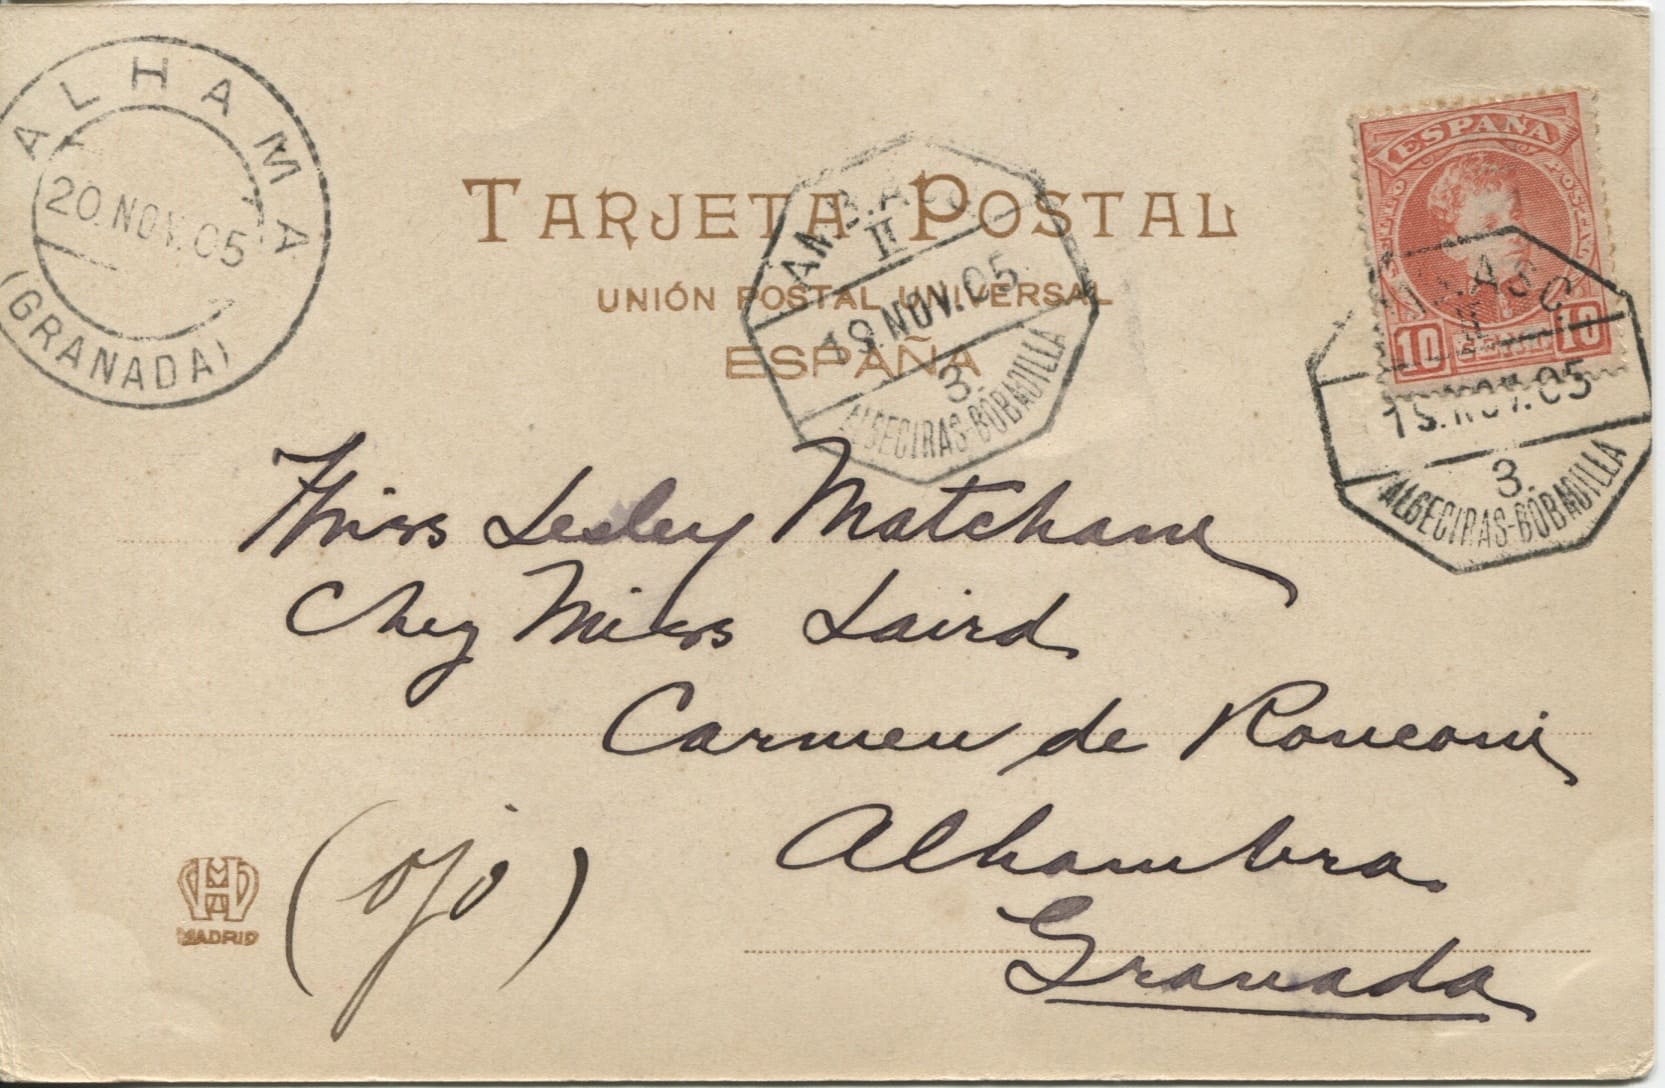 ALHAMA
20.NOV.05
(GRANADA)
TARJETA POSTAL
UNIÓN POSTAL UNIVERSAL
ESPAÑA
AMB.ASC
II
19.NOV.05
3.
ALGECIRAS-BOBADILLA
ESPAÑA
10 10
ASC
II
19.NOV.05
3.
ALGECIRAS-BOBADILLA
Miss Lesley Matcham
Chez Miss Laird
Carmen de Ronconi
Alhambra
Granada
(ojo)
MADRID